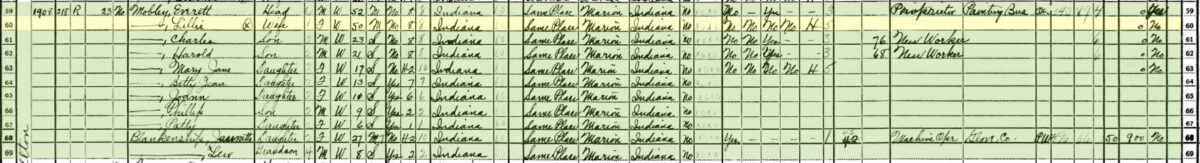 59 1908 218 R 23 No Mobley, Everett Head M W 52 M No 8 Indiana Same Place Marion Indiana No No Yes Proprietor Painting Bus 0 Yes 59
60 ——, Lillie Wife F W 50 M No 8 Indiana Same Place Marion Indiana No No No No No H 5 0 No 60
61 ——, Charles Son M W 23 S No 8 Indiana Same Place Marion Indiana No No No Yes 3 76 New Worker 0 No 61
62 ——, Harold Son M W 21 S No 8 Indiana Same Place Marion Indiana No No No Yes 3 68 New Worker 0 No 62
63 ——, Mary Jane Daughter F W 17 S No H2 Indiana Same Place Marion Indiana No No No No No H 5 0 No 63
64 ——, Betty Jean Daughter F W 13 S Yes 7 Indiana Same Place Marion Indiana No
65 ——, Joann Daughter F W 10 S Yes 6 Indiana Same Place Marion Indiana No 65
66 ——, Phillip Son M W 9 S Yes 2 Indiana Same Place Marion Indiana No 66
67 ——, Patty Daughter F W 6 S Yes 1 Indiana Same Place Marion Indiana No 67
68 Blankenship, Daughter F W 27 M No H2 Indiana Same Place Marion Indiana No Yes 1 42 Machine Oper. Glove Co. PW 50 900 No 68
69 ——, Grandson M W 8 S Yes 2 Indiana Same Place Marion Indiana No 69